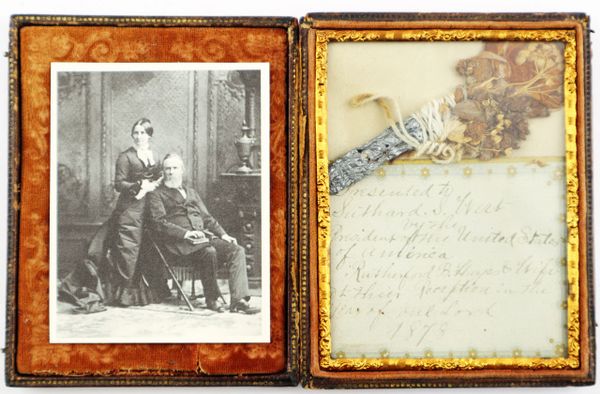 Presented to
S. West
by the
President of the United States
of America
Rutherford B. Hayes & Wife
at their reception in the
year of our Lord
1878